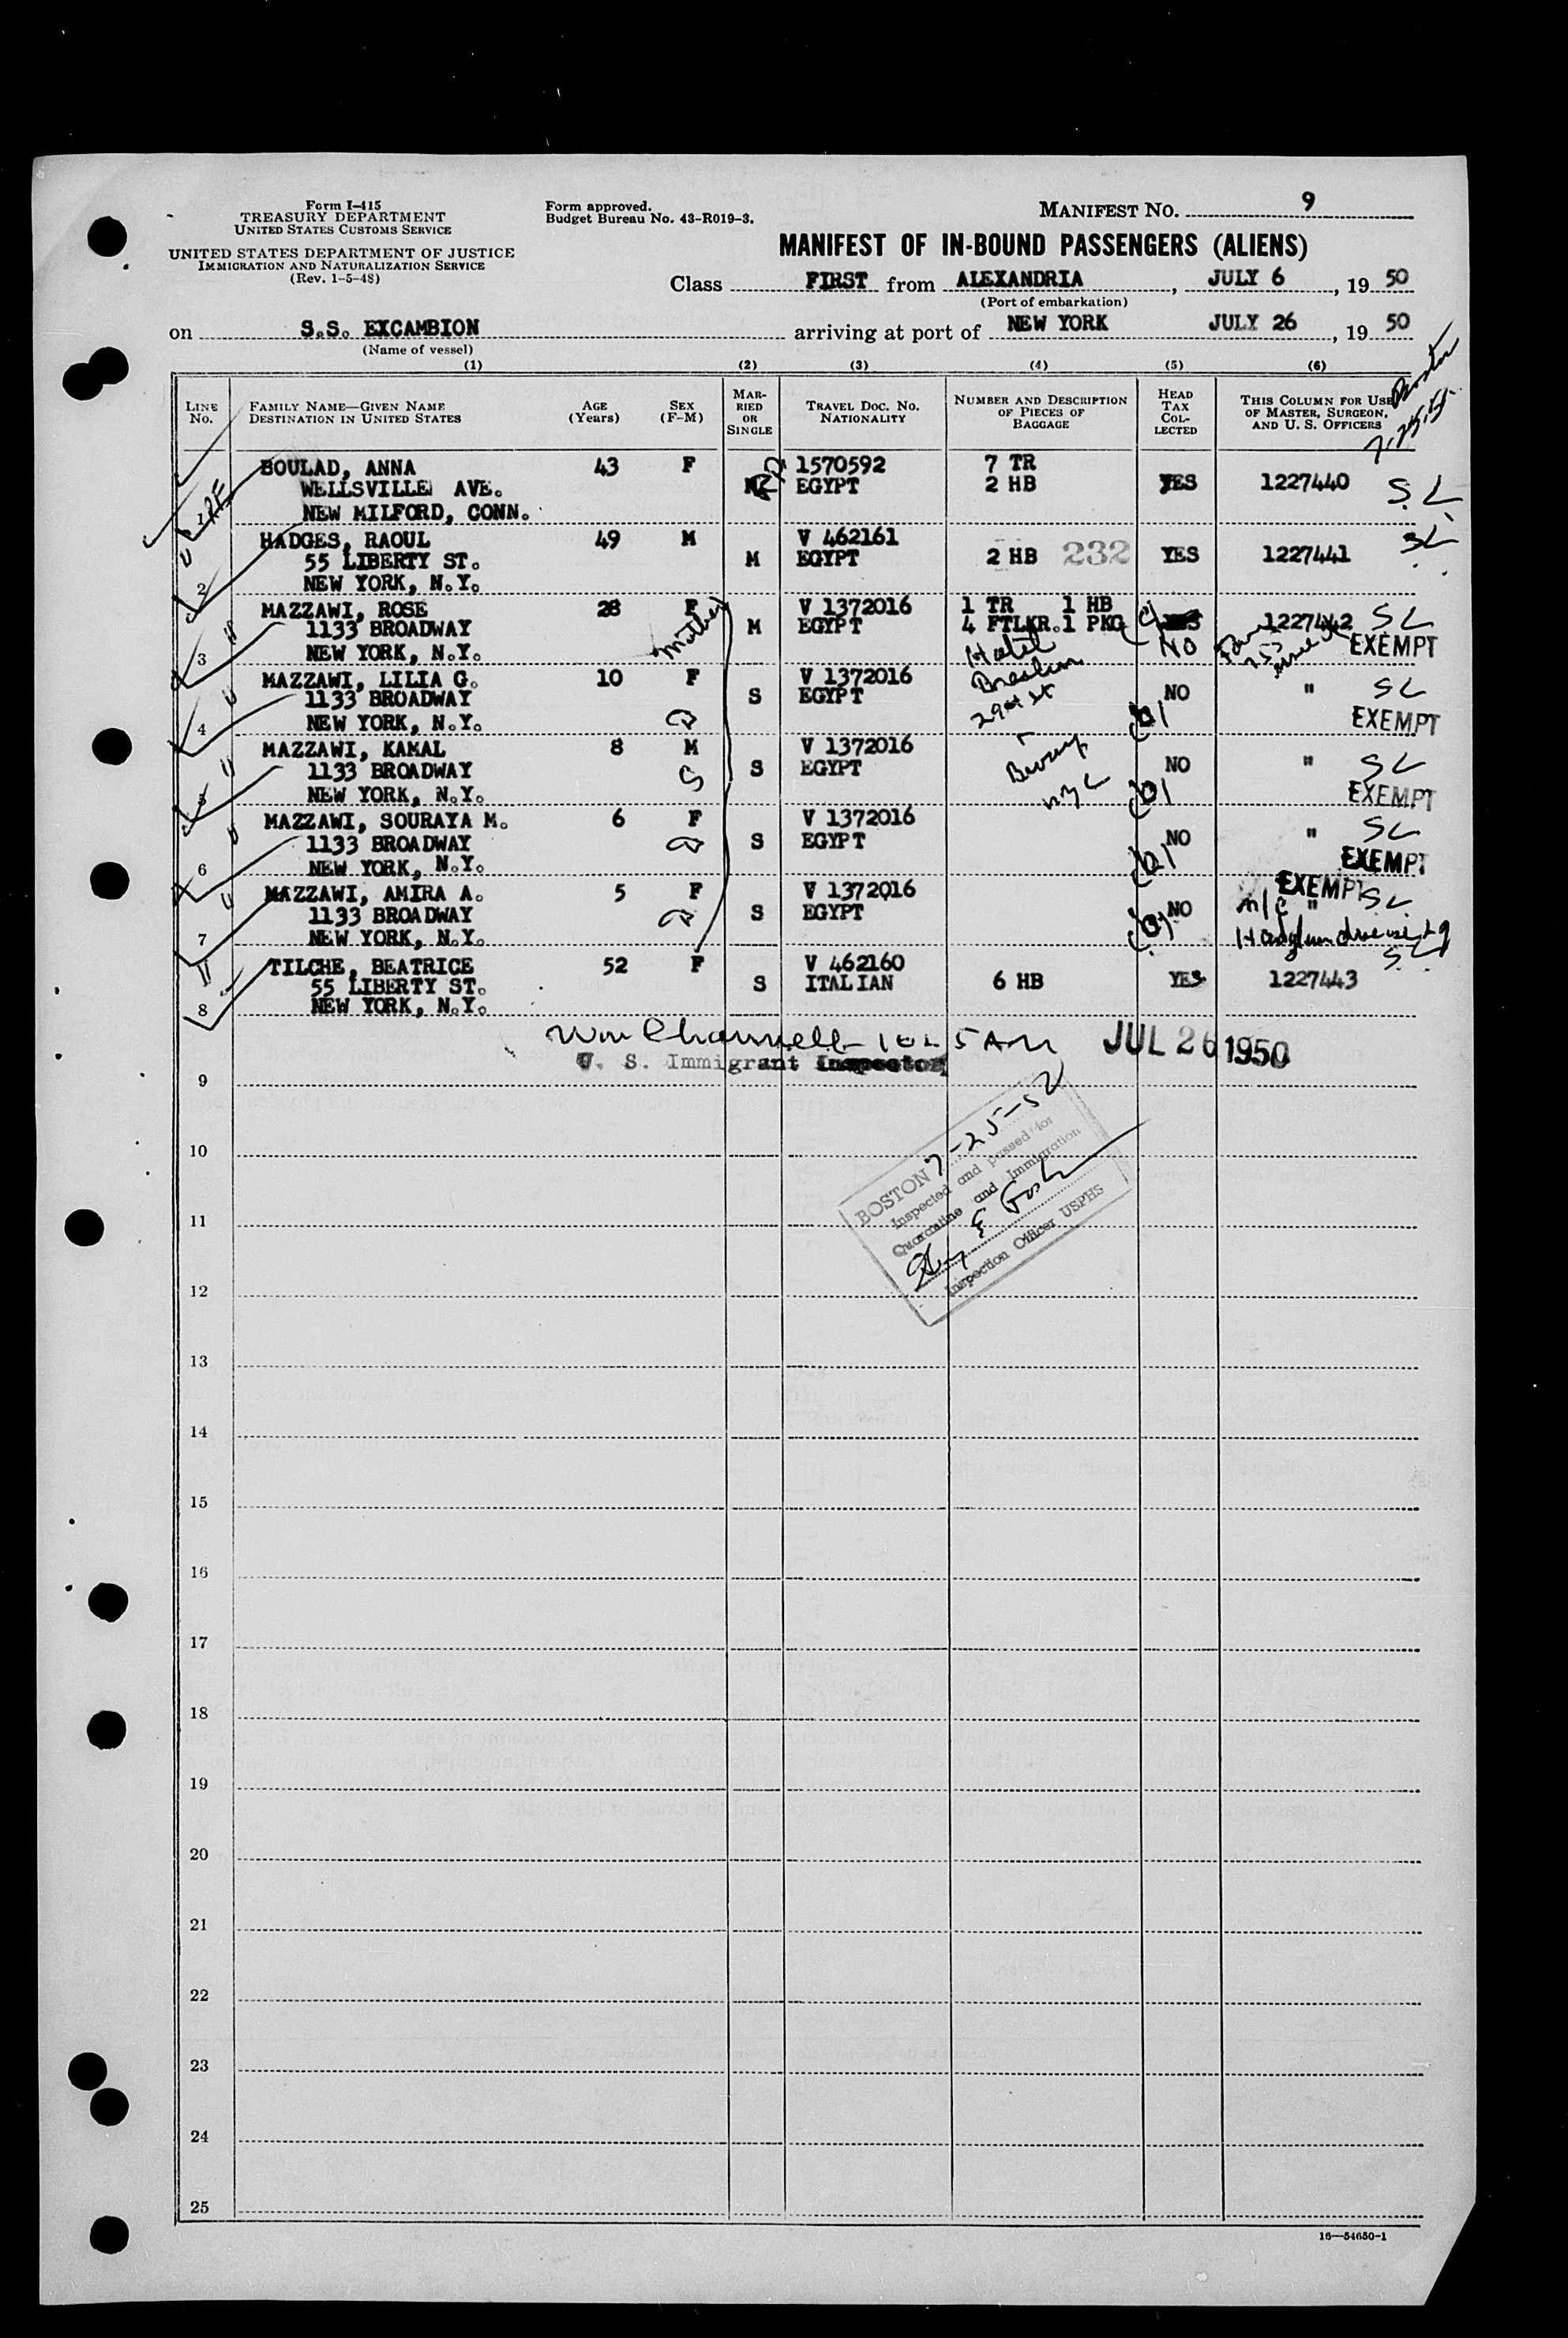 Form I-415
TREASURY DEPARTMENT
UNITED STATES CUSTOMS SERVICE
UNITED STATES DEPARTMENT OF JUSTICE
IMMIGRATION AND NATURALIZATION SERVICE
(Rev. 1-5-48)
Form approved.
Budget Bureau No. 43-R019-3.
MANIFEST NO. 9
MANIFEST OF IN-BOUND PASSENGERS (ALIENS)
Class FIRST from ALEXANDRIA, JULY 6, 19 50
(Port of embarkation)
on S.S. EXCAMBION arriving at port of NEW YORK JULY 26, 19 50
(Name of vessel)
Boston
(1) (2) (3) (4) (5) (6)
LINE NO. FAMILY NAME—GIVEN NAME DESTINATION IN UNITED STATES AGE (Years) SEX (F-M) MARRIED OR SINGLE TRAVEL DOC. NO. NATIONALITY NUMBER AND DESCRIPTION OF PIECES OF BAGGAGE HEAD TAX COLLECTED THIS COLUMN FOR USE OF MASTER, SURGEON, AND U. S. OFFICERS
BOULAD, ANNA 43 F 1570592 7 TR
WELLSVILLE AVE. EGYPT 2 HB YES 1227440 SL
1 NEW MILFORD, CONN.
HADGES, RAOUL 49 M V 462161 SL
55 LIBERTY ST. M EGYPT 2 HB 232 YES 1227441
2 NEW YORK, N.Y.
MAZZAWI, ROSE 28 F V 1372016 1 TR 1 HB
1133 BROADWAY Mother M EGYPT 4 FTLKR. 1 PKG 1227442 SL
3 NEW YORK, N.Y. Hotel NO EXEMPT
Breslin
29th St
MAZZAWI, LILIA G. 10 F V 1372016
1133 BROADWAY S EGYPT NO " SL
4 NEW YORK, N.Y. EXEMPT
MAZZAWI, KAMAL 8 M V 1372016
1133 BROADWAY S EGYPT NO " SL
5 NEW YORK, N.Y. EXEMPT
MAZZAWI, SOURAYA M. 6 F V 1372016
1133 BROADWAY S EGYPT NO " SL
6 NEW YORK, N.Y. EXEMPT
MAZZAWI, AMIRA A. 5 F V 1372016 EXEMPT
1133 BROADWAY S EGYPT NO " SL
7 NEW YORK, N.Y.
TILCHE, BEATRICE 52 F V 462160 SL
55 LIBERTY ST. S ITALIAN 6 HB YES 1227443
8 NEW YORK, N.Y.
JUL 26 1950
U. S. Immigrant Inspector
9
BOSTON 7-25-50
Inspected and passed for
Quarantine and Immigration
Inspection Officer USPHS
10
11
12
13
14
15
16
17
18
19
20
21
22
23
24
25
16—54650-1